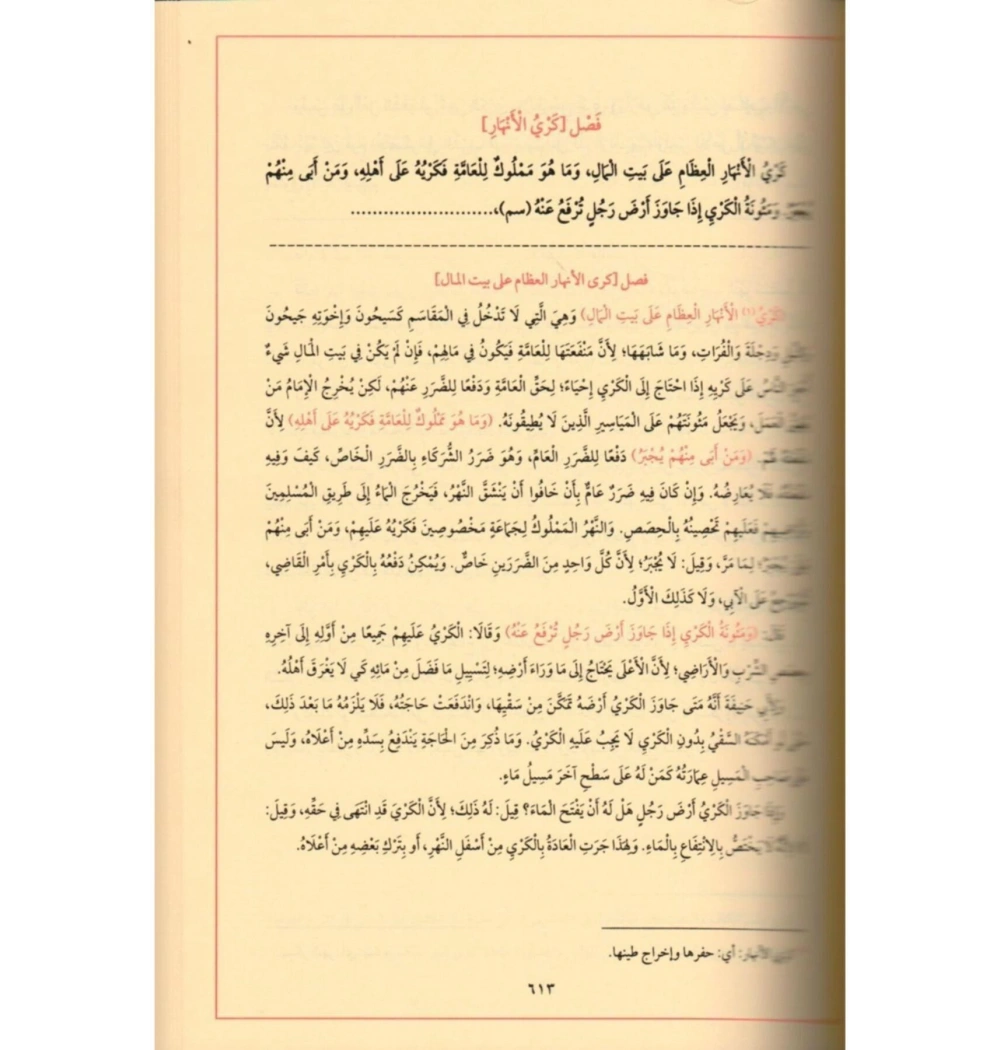 فَصْل [كَرْيُ الْأَنْهَارِ]
كَرْيُ الْأَنْهَارِ الْعِظَامِ عَلَى بَيْتِ الْمَالِ، وَمَا هُوَ مَمْلُوكٌ لِلْعَامَّةِ فَكَرْيُهُ عَلَى أَهْلِهِ، وَمَنْ أَبَى مِنْهُمْ
وَمَئُونَةُ الْكَرْيِ إِذَا جَاوَزَ أَرْضَ رَجُلٍ تُرْفَعُ عَنْهُ (سم)،.........................
فصل [كرى الأنهار العظام على بيت المال]
(كَرْيُ(١) الْأَنْهَارِ الْعِظَامِ عَلَى بَيْتِ الْمَالِ) وَهِيَ الَّتِي لَا تَدْخُلُ فِي الْمَقَاسَمِ كَسَيْحُونَ وَإِخْوَتِهِ جَيحُونَ
وَدِجْلَةَ وَالْفُرَاتِ، وَمَا شَابَهَهَا؛ لِأَنَّ مَنْفَعَتَهَا لِلْعَامَّةِ فَيَكُونُ فِي مَالِهِمْ، فَإِنْ لَمْ يَكُنْ فِي بَيْتِ الْمَالِ شَيءٌ
النَّاسُ عَلَى كَرْيِهِ إِذَا احْتَاجَ إِلَى الْكَرْيِ إِحْيَاءً؛ لِحَقِّ الْعَامَّةِ وَدَفْعًا لِلضَّرَرِ عَنْهُمْ، لَكِنْ يُخْرِجُ الْإِمَامُ مَنْ
الْعَمَلَ، وَيَجْعَلُ مَئُونَتَهُمْ عَلَى الْمَيَاسِيرِ الَّذِينَ لَا يُطِيقُونَهُ. (وَمَا هُوَ مَمْلُوكٌ لِلْعَامَّةِ فَكَرْيُهُ عَلَى أَهْلِهِ) لِأَنَّ
لَهُمْ. (وَمَنْ أَبَى مِنْهُمْ يُجْبَرُ) دَفْعًا لِلضَّرَرِ الْعَامِّ، وَهُوَ ضَرَرُ الشُّرَكَاءِ بِالضَّرَرِ الْخَاصِّ، كَيفَ وَفِيهِ
فَلَا يُعَارِضُهُ. وَإِنْ كَانَ فِيهِ ضَرَرٌ عَامٌّ بِأَنْ خَافُوا أَنْ يَنْشَقَّ النَّهْرُ، فَيَخْرُجَ الْمَاءُ إِلَى طَرِيقِ الْمُسْلِمِينَ
فَعَلَيهِمْ تَحْصِينُهُ بِالْحِصَصِ. وَالنَّهْرُ الْمَمْلُوكُ لِجَمَاعَةٍ مَخْصُوصِينَ فَكَرْيُهُ عَلَيهِمْ، وَمَنْ أَبَى مِنْهُمْ
لِمَا مَرَّ، وَقِيلَ: لَا يُجْبَرُ؛ لِأَنَّ كُلَّ وَاحِدٍ مِنَ الضَّرَرَينِ خَاصٌّ. وَيُمْكِنُ دَفْعُهُ بِالْكَرْيِ بِأَمْرِ الْقَاضِي،
عَلَى الْآبِي، وَلَا كَذَلِكَ الْأَوَّلُ.
قَالَ: (وَمَئُونَةُ الْكَرْيِ إِذَا جَاوَزَ أَرْضَ رَجُلٍ تُرْفَعُ عَنْهُ) وَقَالَا: الْكَرْيُ عَلَيهِمْ جَمِيعًا مِنْ أَوَّلِهِ إِلَى آخِرِهِ
الشِّرْبِ وَالْأَرَاضِي؛ لِأَنَّ الْأَعْلَى يَحْتَاجُ إِلَى مَا وَرَاءَ أَرْضِهِ؛ لِتَسْيِيلِ مَا فَضَلَ مِنْ مَائِهِ كَي لَا يَغْرَقَ أَهْلُهُ.
وَلِأَبِي حَنِيفَةَ أَنَّهُ مَتَى جَاوَزَ الْكَرْيُ أَرْضَهُ تَمَكَّنَ مِنْ سَقْيِهَا، وَانْدَفَعَتْ حَاجَتُهُ، فَلَا يَلْزَمُهُ مَا بَعْدَ ذَلِكَ،
أَمْكَنَهُ السَّقْيُ بِدُونِ الْكَرْيِ لَا يَجِبُ عَلَيهِ الْكَرْيُ. وَمَا ذُكِرَ مِنَ الْحَاجَةِ يَنْدَفِعُ بِسَدِّهِ مِنْ أَعْلَاهُ، وَلَيسَ
صَاحِبِ الْمَسِيلِ عِمَارَتُهُ كَمَنْ لَهُ عَلَى سَطْحِ آخَرَ مَسِيلُ مَاءٍ.
جَاوَزَ الْكَرْيُ أَرْضَ رَجُلٍ هَلْ لَهُ أَنْ يَفْتَحَ الْمَاءَ؟ قِيلَ: لَهُ ذَلِكَ؛ لِأَنَّ الْكَرْيَ قَدِ انْتَهَى فِي حَقِّهِ، وَقِيلَ:
يَخْتَصُّ بِالِانْتِفَاعِ بِالْمَاءِ. وَلِهَذَا جَرَتِ الْعَادَةُ بِالْكَرْيِ مِنْ أَسْفَلِ النَّهْرِ، أَو بِتَرْكِ بَعْضِهِ مِنْ أَعْلَاهُ.
الأنهار: أي: حفرها وإخراج طينها.
٦١٣